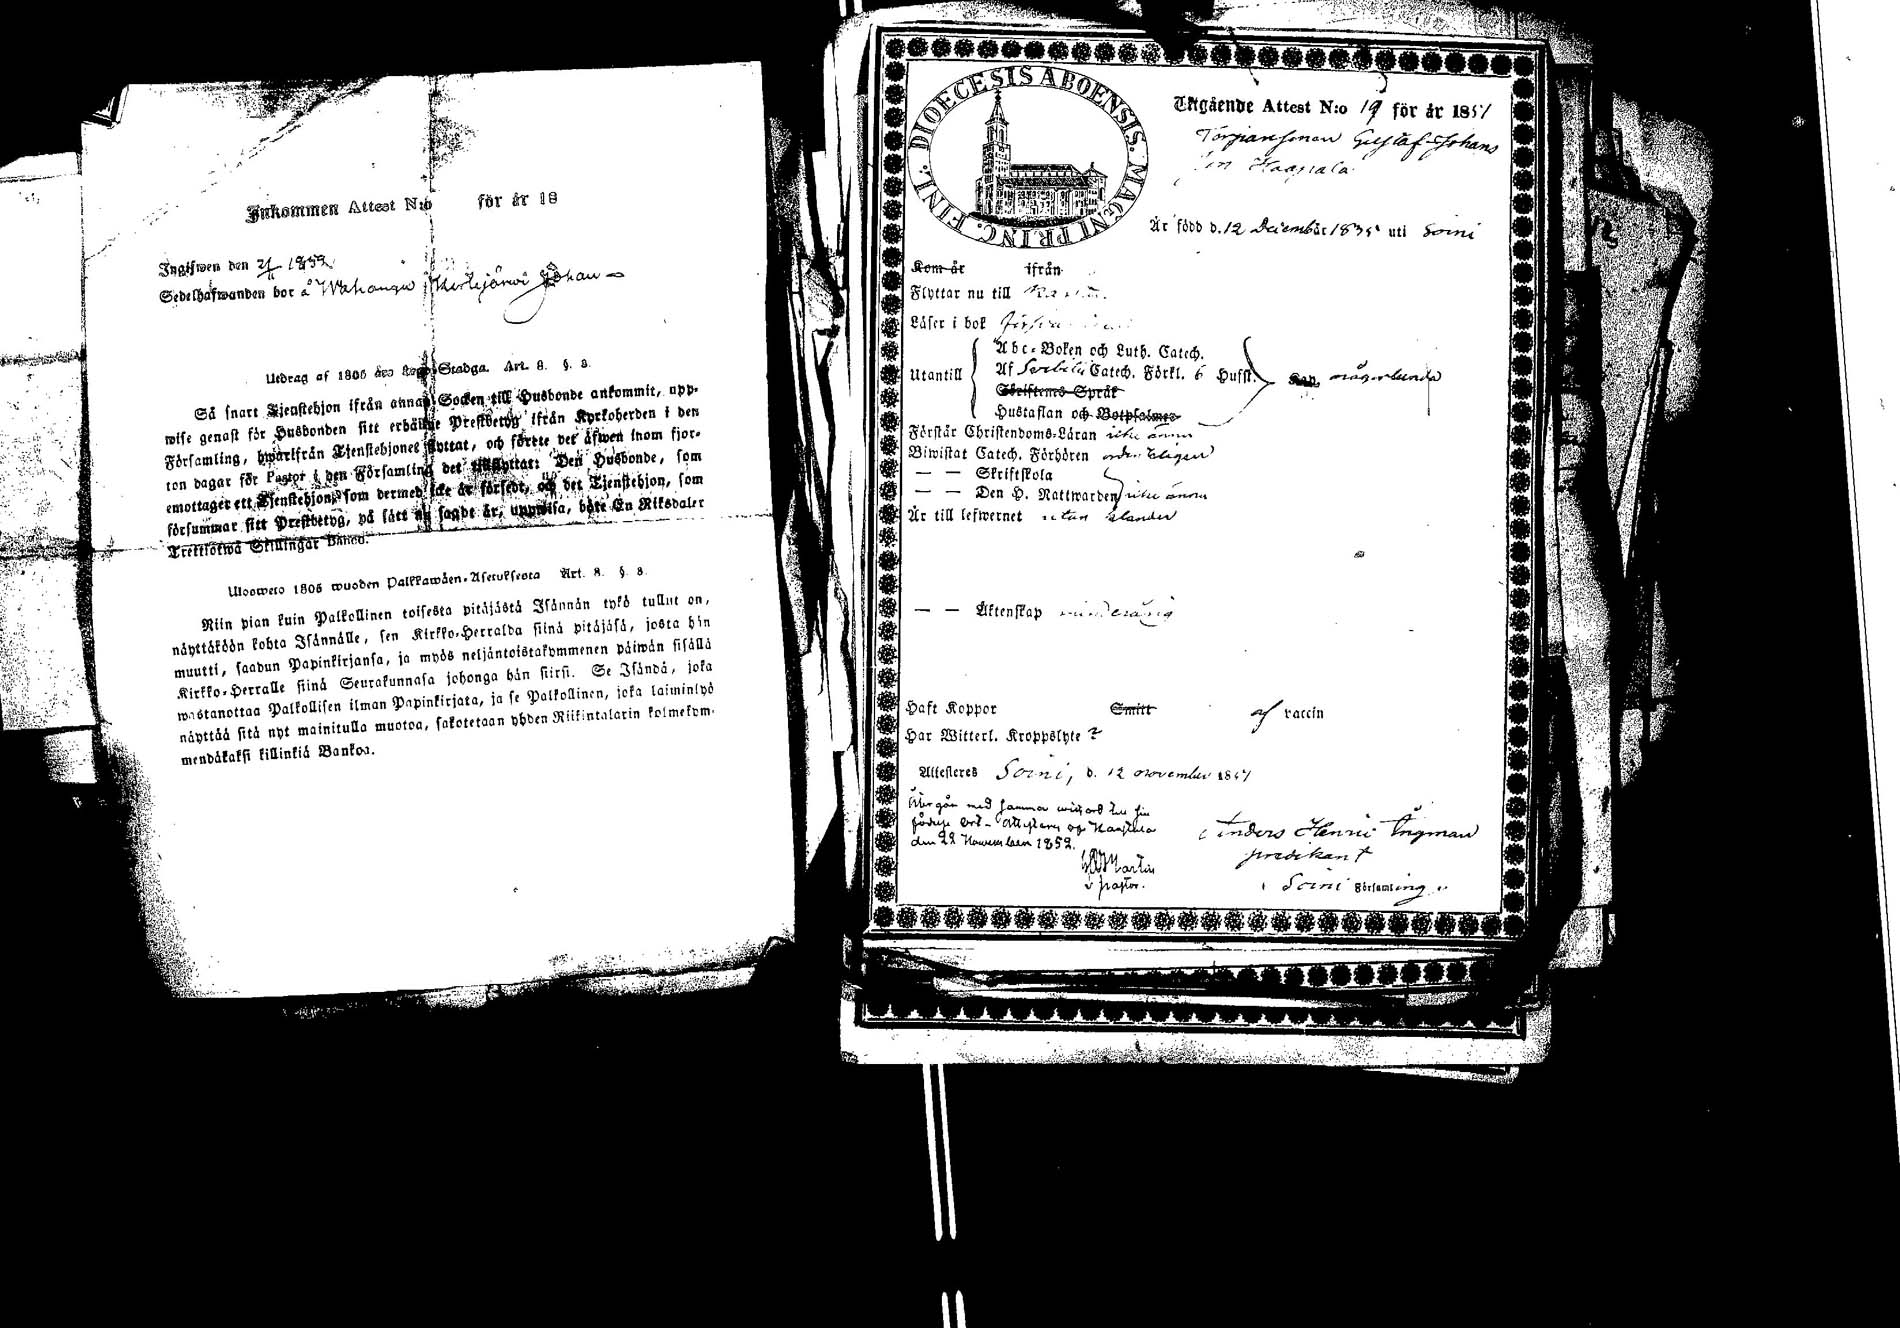 Inkommen Attest N:o för år 18
Ingifwen den 21/11 1852
Sedelhafwanden bor å Johan
Utdrag af 1805 års Stadga. Art. 8. §. 8.
Så snart Tjenstehjon ifrån annan Socken till Husbonde ankommit, upp-
wise genast för Husbonden sitt erhållne Prestbetyg ifrån Kyrkoherden i den
Församling, hwarifrån Tjenstehjonet flyttat, och förete det äfwen inom fjor-
ton dagar för Pastor i den Församling det tillflyttat: Den Husbonde, som
emottaget ett Tjenstehjon, som dermed icke är försedt, och det Tjenstehjon, som
försummar sitt Prestbetyg, på sätt nu sagdt är, uppwisa, böte En Riksdaler
Trettiotwå Skillingar Banco.
Ulosweto 1805 wuoden Palkkawäen-Asetuksesta Art. 8. §. 8.
Niin pian kuin Palkollinen toisesta pitäjästä Isännän tykö tullut on,
näyttäköön kohta Isännälle, sen Kirkko-Herralda siinä pitäjäsä, josta hän
muutti, saadun Papinkirjansa, ja myös neljäntoistakymmenen päiwän sisällä
Kirkko-Herralle siinä Seurakunnasa johonga hän siirsi. Se Isändä, joka
wastanottaa Palkollisen ilman Papinkirjata, ja se Palkollinen, joka laiminlyö
näyttää sitä nyt mainitulla muotoa, sakotetaan yhden Riikintalarin kolmekym-
mendäkaksi killinkiä Bankoa.
DIOECESIS ABOENSIS. MAGNI PRINC. FINL.
Utgående Attest N:o 19 för år 1851
Torparesonen Gustaf Johans
son Haapala
Är född d. 12 December 1835 uti Soini
Kom år ifrån
Flyttar nu till
Läser i bok
Utantill
Abc-Boken och Luth. Catech.
Af Svebilii Catech. Förkl. 6 Hufst. någorlunda
Skriftenes Språk
Hustaflan och Botpsalmer
Förstår Christendoms-Läran icke ännu
Biwistat Catech. Förhören ordentligen
— — Skriftskola
— — Den H. Nattwarden icke ännu
Är till lefwernet utan klander
— — Äktenskap minderårig
Haft Koppor Smitt af vaccin
Har Witterl. Kroppslyte ?
Attesteres Soini, d. 12 november 1851
Återgår med samma
den 22 November 1852.
Martin
v pastor.
Anders Henric Ingman
predikant
i Soini Församling